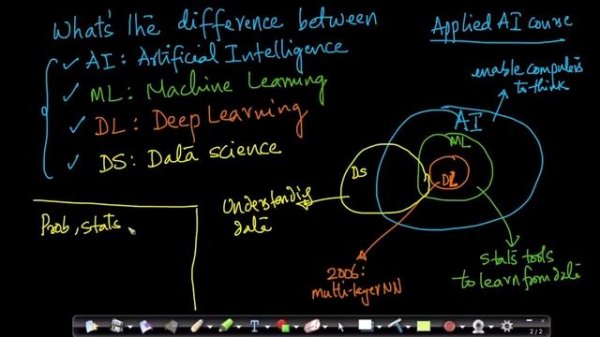 What's the difference between
AI: Artificial Intelligence
ML: Machine Learning
DL: Deep Learning
DS: Data science
Applied AI course
enable computers
to think
AI
ML
DL
DS
Understanding
data
Prob, stats,
2006:
multi-layer NN
stats tools
to learn from data
2 / 2